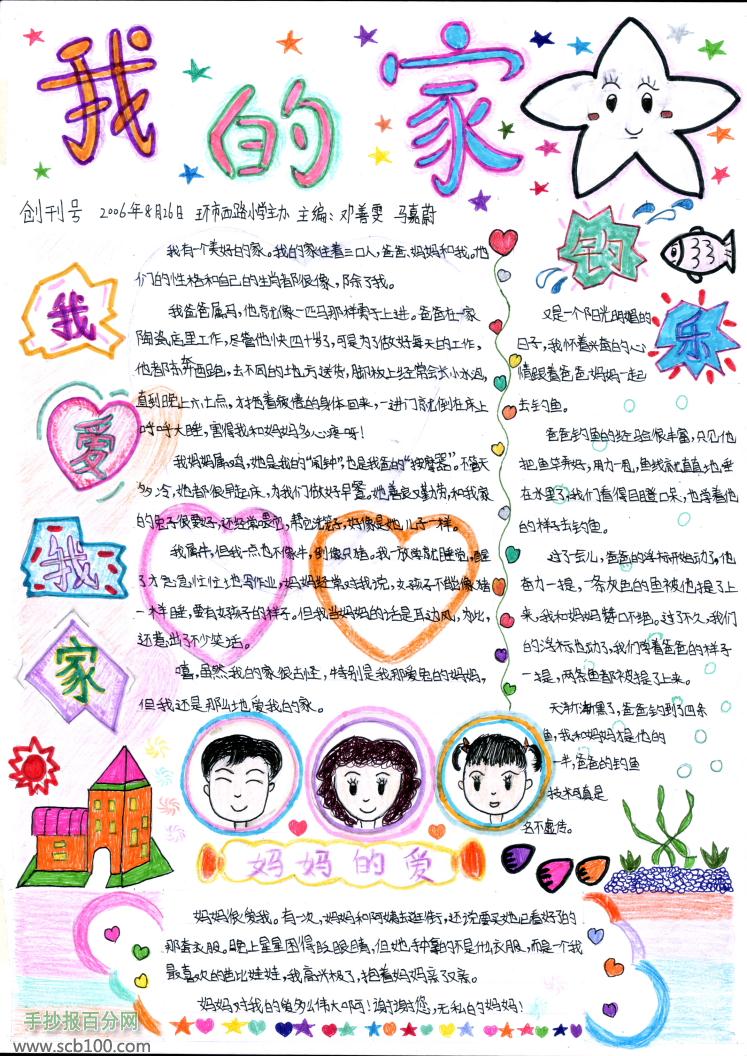 我的家
创刊号 2006年8月26日 环市西路小学主办 主编：邓善雯 马嘉蔚
我爱我家
我有个美好的家。我的家住着三口人，爸爸、妈妈和我。他
们的性格和自己的生肖都很像，除了我。
我爸爸属马，他就像一匹马那样勇于上进。爸爸在一家
陶瓷店里工作，尽管他快四十岁了，可是为了做好每天的工作，
他都东奔西跑，去不同的地方送货，脚板上经常会长小水泡，
直到晚上六七点，才拖着疲惫的身体回来，一进门就倒在床上
呼呼大睡，害得我和妈妈多心疼呀！
我妈妈属鸡，她是我的“闹钟”，也是我爸的“按摩器”。不管天
多冷，她都很早起床，为我们做好早餐。她善良又勤劳，和我家
的兔子很要好，还经常喂它，帮它洗笼子，好像是她儿子一样。
我属牛，但我一点也不像牛，倒像只猪。我一放学就睡觉，醒
了才急急忙忙地写作业，妈妈经常对我说，女孩子不能像猪
一样睡，要有女孩子的样子。但我当妈妈的话是耳边风，为此，
还惹出了不少笑话。
嘻，虽然我的家很古怪，特别是我那爱兔的妈妈，
但我还是那么地爱我的家。
钓乐
又是一个阳光明媚的
日子，我怀着兴奋的心
情跟着爸爸妈妈一起
去钓鱼。
爸爸钓鱼的经验很丰富，只见他
把鱼竿弄好，用力一甩，鱼线就直直地垂
在水里了，我们看得目瞪口呆，也学着他
的样子去钓鱼。
过了会儿，爸爸的浮标开始动了，他
奋力一提，一条灰色的鱼被他提了上
来，我和妈妈赞口不绝。过了不久，我们
的浮标也动了，我们学着爸爸的样子
一提，两条鱼都被提了上来。
天渐渐黑了，爸爸钓到了四条
鱼，我和妈妈才是他的
一半，爸爸的钓鱼
技术真是
名不虚传。
妈妈的爱
妈妈很爱我。有一次，妈妈和阿姨去逛街，还说要买她已看好的
那套衣服。晚上星星困得眨眼睛，但她手中拿的不是什么衣服，而是一个我
最喜欢的芭比娃娃，我高兴极了，抱着妈妈亲了又亲。
妈妈对我的爱多么伟大啊！谢谢您，无私的妈妈！
手抄报百分网
www.scb100.com